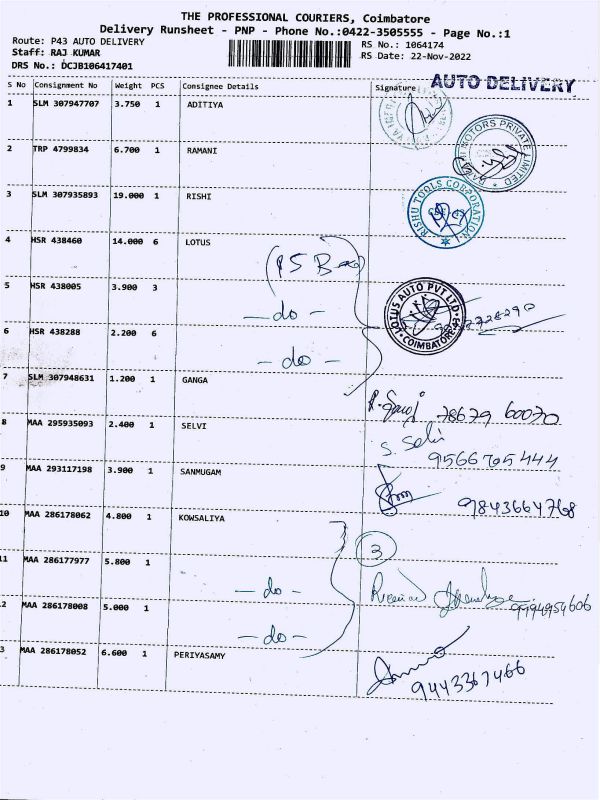 THE PROFESSIONAL COURIERS, Coimbatore
Delivery Runsheet - PNP - Phone No.:0422-3505555 - Page No.:1
Route: P43 AUTO DELIVERY
RS No.: 1064174
Staff: RAJ KUMAR
RS Date: 22-Nov-2022
DRS No.: DCJB106417401
AUTO DELIVERY
S No Consignment No Weight PCS Consignee Details Signature
1 SLM 307947707 3.750 1 ADITIYA
2 TRP 4799834 6.700 1 RAMANI
MOTORS PRIVATE LIMITED
3 SLM 307935893 19.000 1 RISHI
RISHU TOOLS CORPORATION
4 HSR 438460 14.000 6 LOTUS
(15 Box)
5 HSR 438005 3.900 3
- do -
LOTUS AUTO PVT LTD COIMBATORE-43
6 HSR 438288 2.200 6
- do -
7 SLM 307948631 1.200 1 GANGA
78679 60070
8 MAA 295935093 2.400 1 SELVI
S. Selvi
9566705444
9 MAA 293117198 3.900 1 SANMUGAM
9843664768
10 MAA 286178062 4.800 1 KOWSALIYA
3
11 MAA 286177977 5.800 1
- do -
Received
9994954606
12 MAA 286178008 5.000 1
- do -
3 MAA 286178052 6.600 1 PERIYASAMY
9443367466